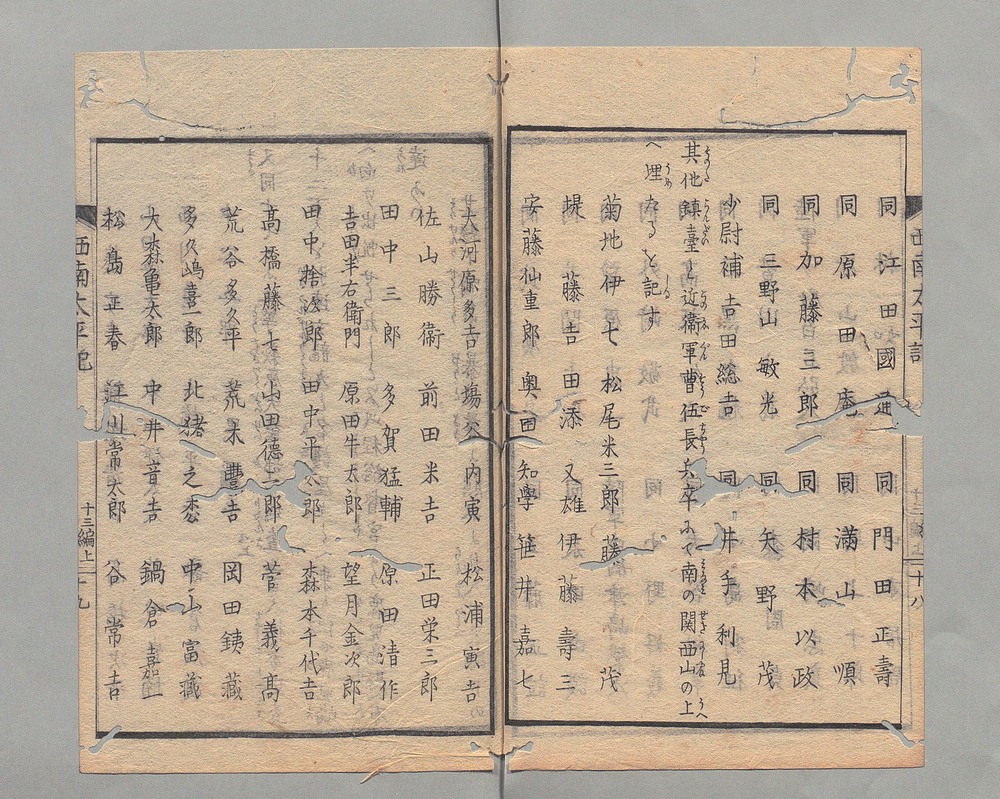 同 江田國通 同 門田正壽
同 原田 同 満山順
同 加藤三郎 同 村本以政
同 三野山敏光 同 矢野茂
少尉補 吉田総吉 同 井手利見
其他鎮臺と近衛軍曹伍長兵卒にて南の関西山の上
へ埋たると記す
菊地伊七 松尾米三郎 藤茂
堤藤吉 田添又雄 伊藤壽三
安藤仙重郎 奥田知學 笹井嘉七
西南太平記
十八
大河原多吉 暴場谷内寅 松浦寅吉
佐山勝衛 前田米吉 正田栄三郎
田中三郎 多賀猛輔 原田清作
吉田半右衛門 原田牛太郎 望月金次郎
田中捨次郎 田中平太郎 森本千代吉
髙橋藤七 山田德二郎 菅義髙
荒谷多久平 荒木豐吉 岡田銕藏
多久嶋喜一郎 北猪之 中山富藏
大森亀太郎 中井音吉 鍋倉嘉一
松島正春 江川常太郎 谷常吉
西南太平記
十三編上
十九